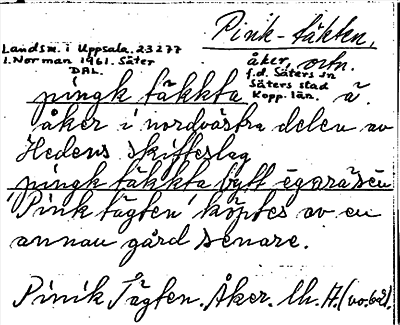 Pink-täkten,
Landsm. i Uppsala. 23277
I. Norman 1961. Säter
DAL.
åker, ortn.
f.d. Säters sn
Säters stad
Kopp. län.
i pingk täkkta, å.
åker i nordvästra delen av
Hedens skifteslag
pingk täkkta bytt egaräsen
'Pink tägten' köptes av en
annan gård senare.
Pinik Tägten. Åker. lh. A. (no. 62).